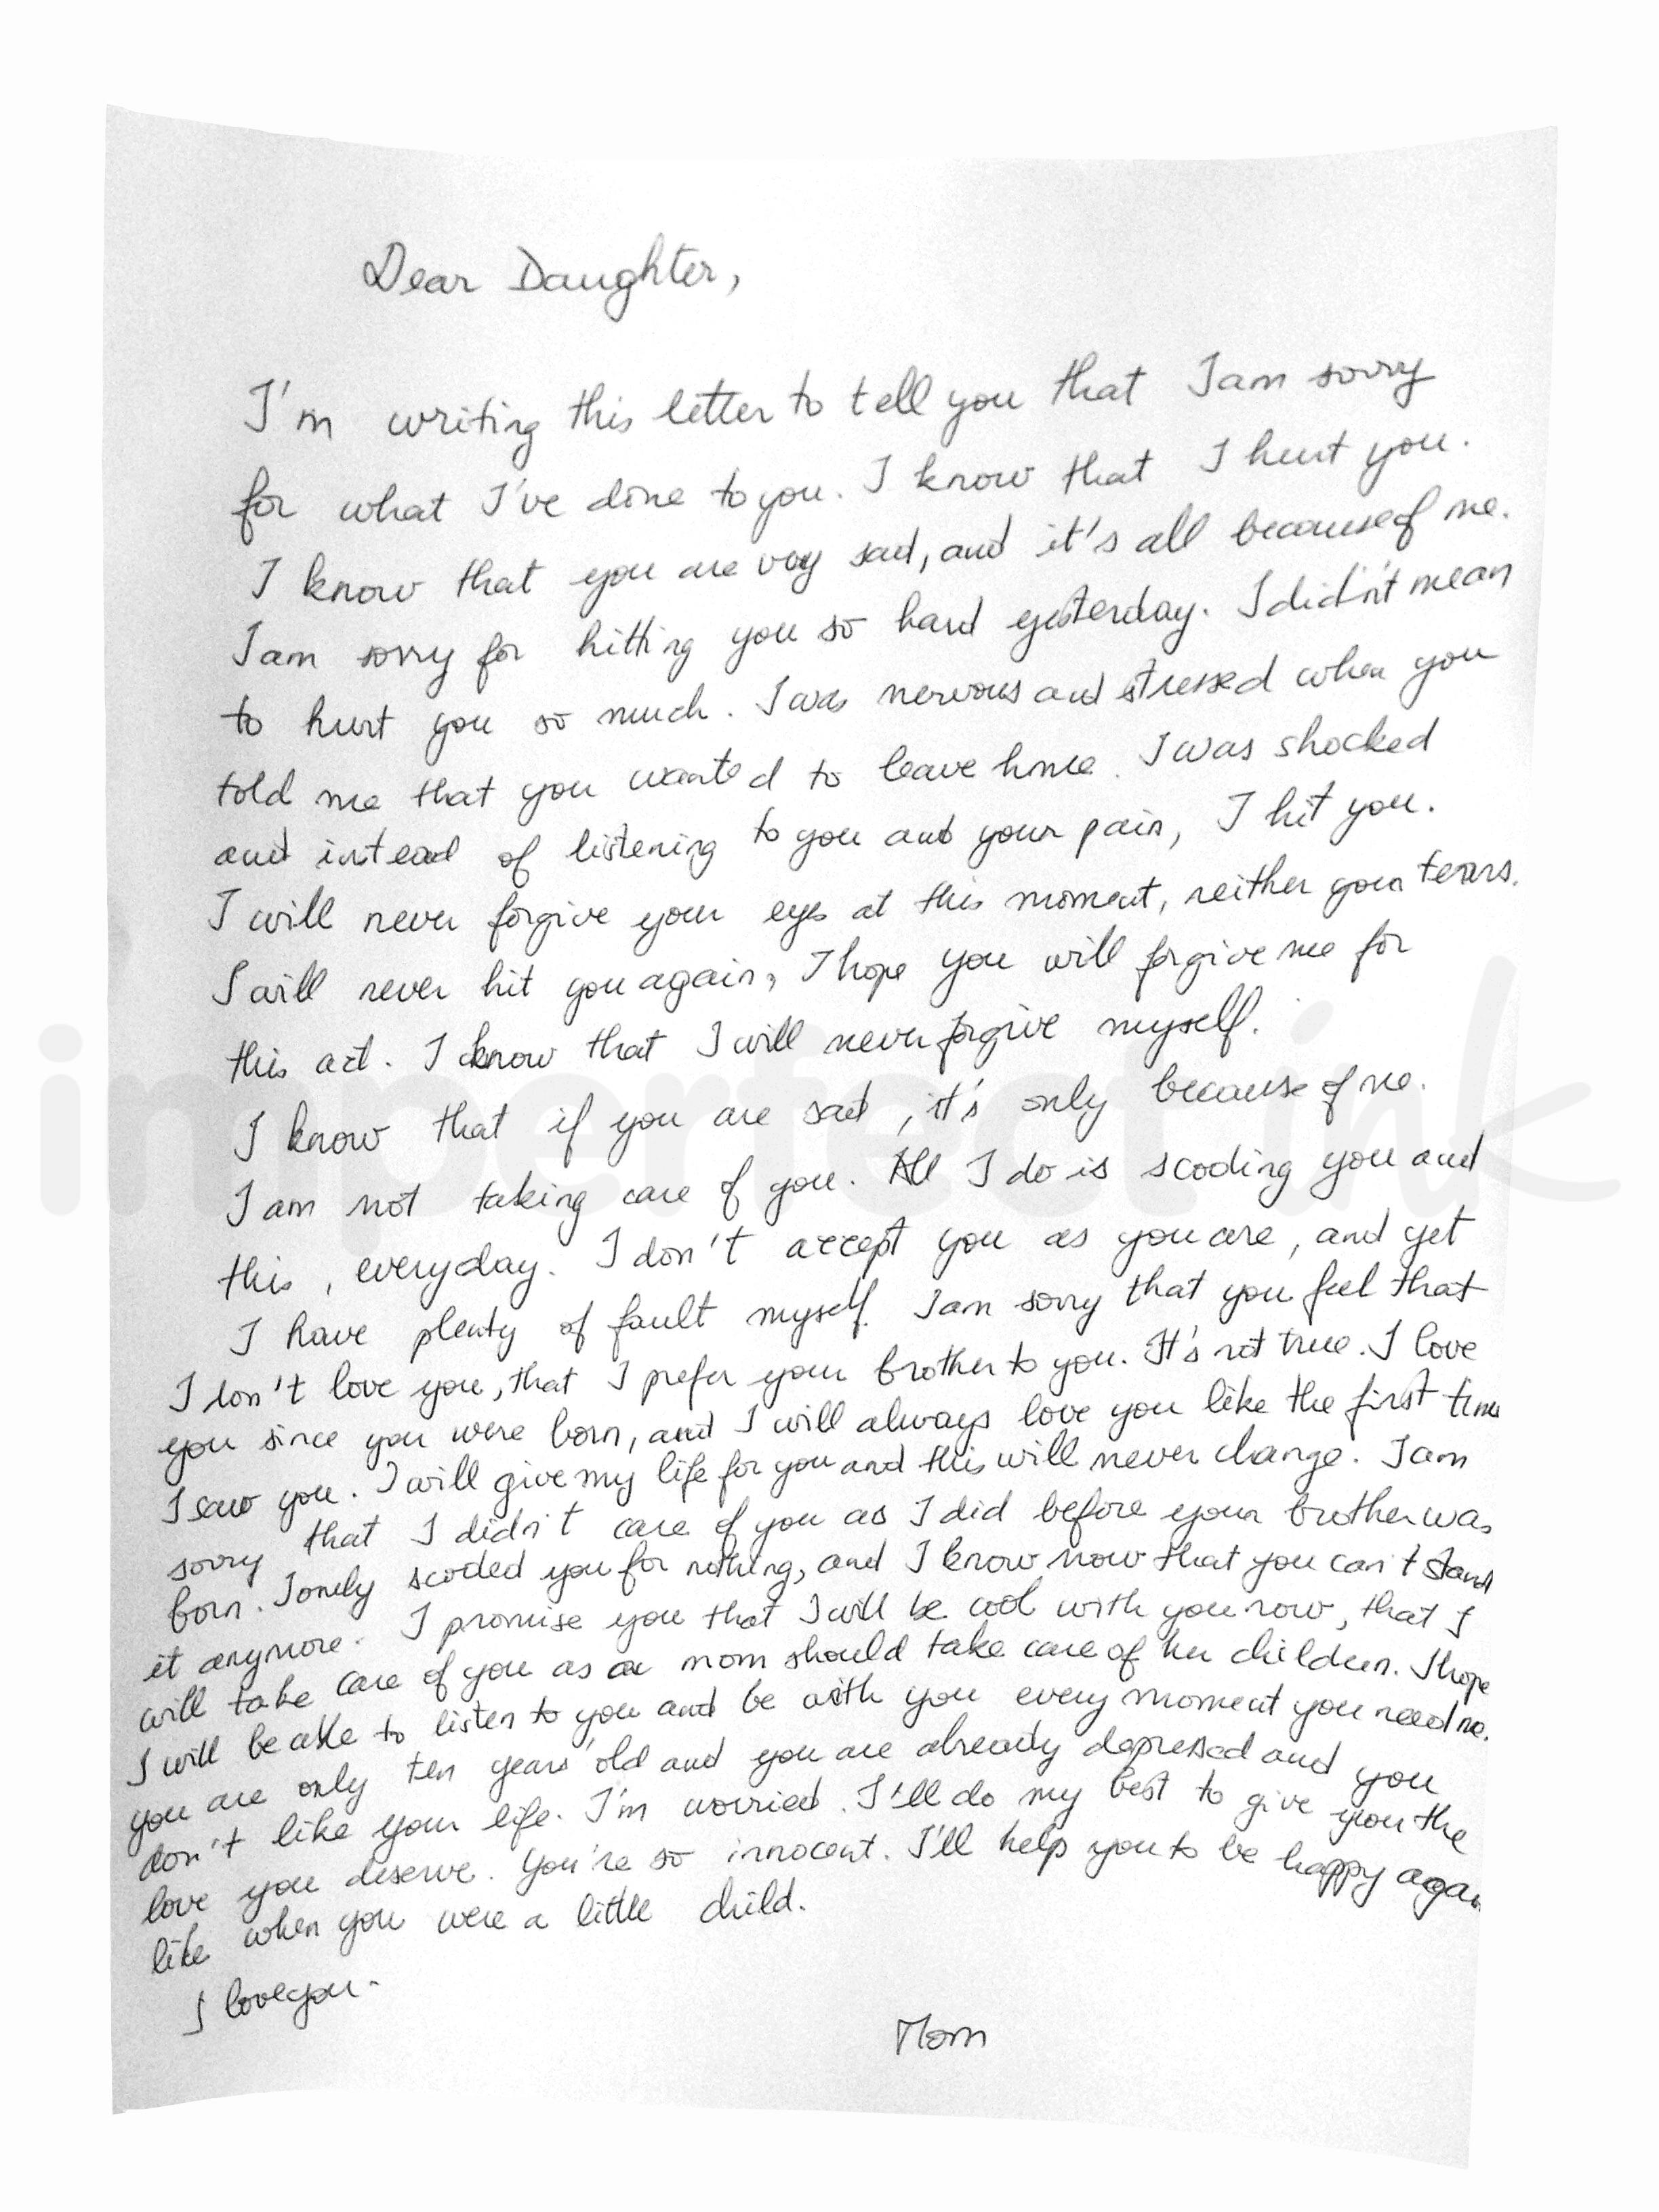 Dear Daughter,
I'm writing this letter to tell you that I am sorry
for what I've done to you. I know that I hurt you.
I know that you are very sad, and it's all because of me.
I am sorry for hitting you so hard yesterday. I didn't mean
to hurt you so much. I was nervous and stressed when you
told me that you wanted to leave home. I was shocked
and instead of listening to you and your pain, I hit you.
I will never forgive your eyes at this moment, neither your tears.
I will never hit you again, I hope you will forgive me for
this act. I know that I will never forgive myself.
I know that if you are sad, it's only because of me.
I am not taking care of you. All I do is scoding you and
this, everyday. I don't accept you as you are, and yet
I have plenty of fault myself. I am sorry that you feel that
I don't love you, that I prefer your brother to you. It's not true. I love
you since you were born, and I will always love you like the first time
I saw you. I will give my life for you and this will never change. I am
sorry that I didn't care of you as I did before your brother was
born. I only scoded you for nothing, and I know now that you can't stand
it anymore. I promise you that I will be cool with you now, that I
will take care of you as a mom should take care of her children. I hope
I will be able to listen to you and be with you every moment you need me.
you are only ten years old and you are already depressed and you
don't like your life. I'm worried. I'll do my best to give you the
love you deserve. You're so innocent. I'll help you to be happy again
like when you were a little child.
I love you.
Mom
imperfect ink